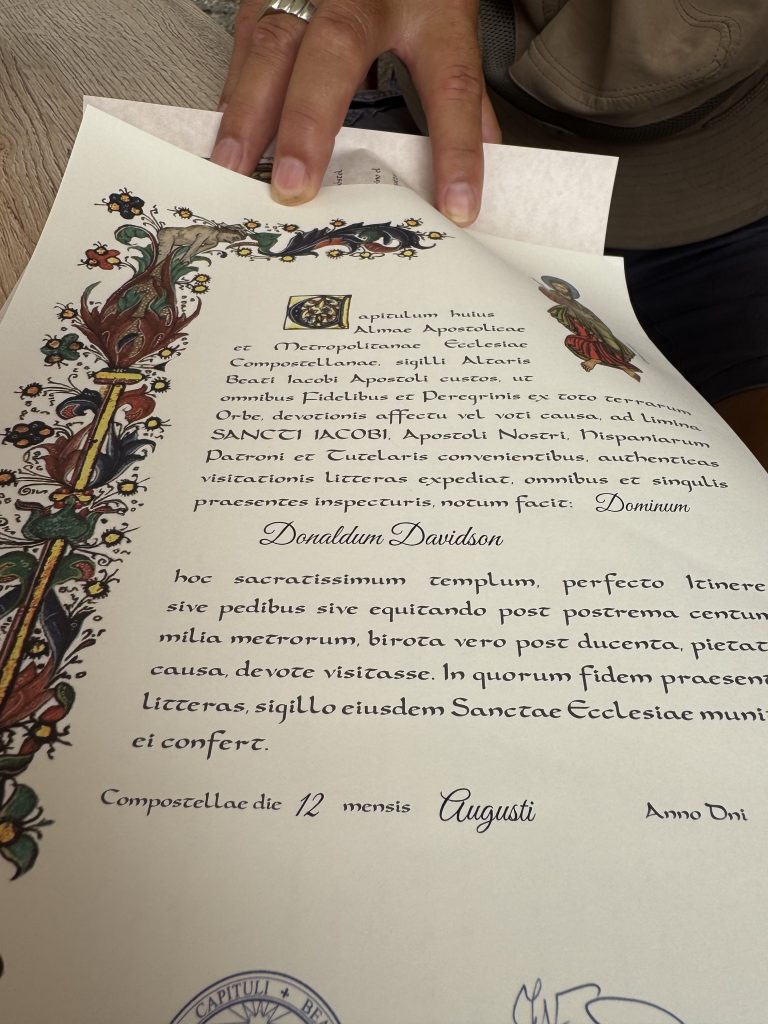 Capitulum huius
Almae Apostolicae
et Metropolitanae Ecclesiae
Compostellanae, sigilli Altaris
Beati Iacobi Apostoli custos, ut
omnibus Fidelibus et Peregrinis ex toto terrarum
Orbe, devotionis affectu vel voti causa, ad limina
SANCTI IACOBI, Apostoli Nostri, Hispaniarum
Patroni et Tutelaris convenientibus, authenticas
visitationis litteras expediat, omnibus et singulis
praesentes inspecturis, notum facit: Dominum
Donaldum Davidson
hoc sacratissimum templum, perfecto Itinere
sive pedibus sive equitando post postrema centum
milia metrorum, birota vero post ducenta, pietat
causa, devote visitasse. In quorum fidem praesent
litteras, sigillo eiusdem Sanctae Ecclesiae muni
ei confert.
Compostellae die 12 mensis Augusti Anno Dni
CAPITULI + BEA